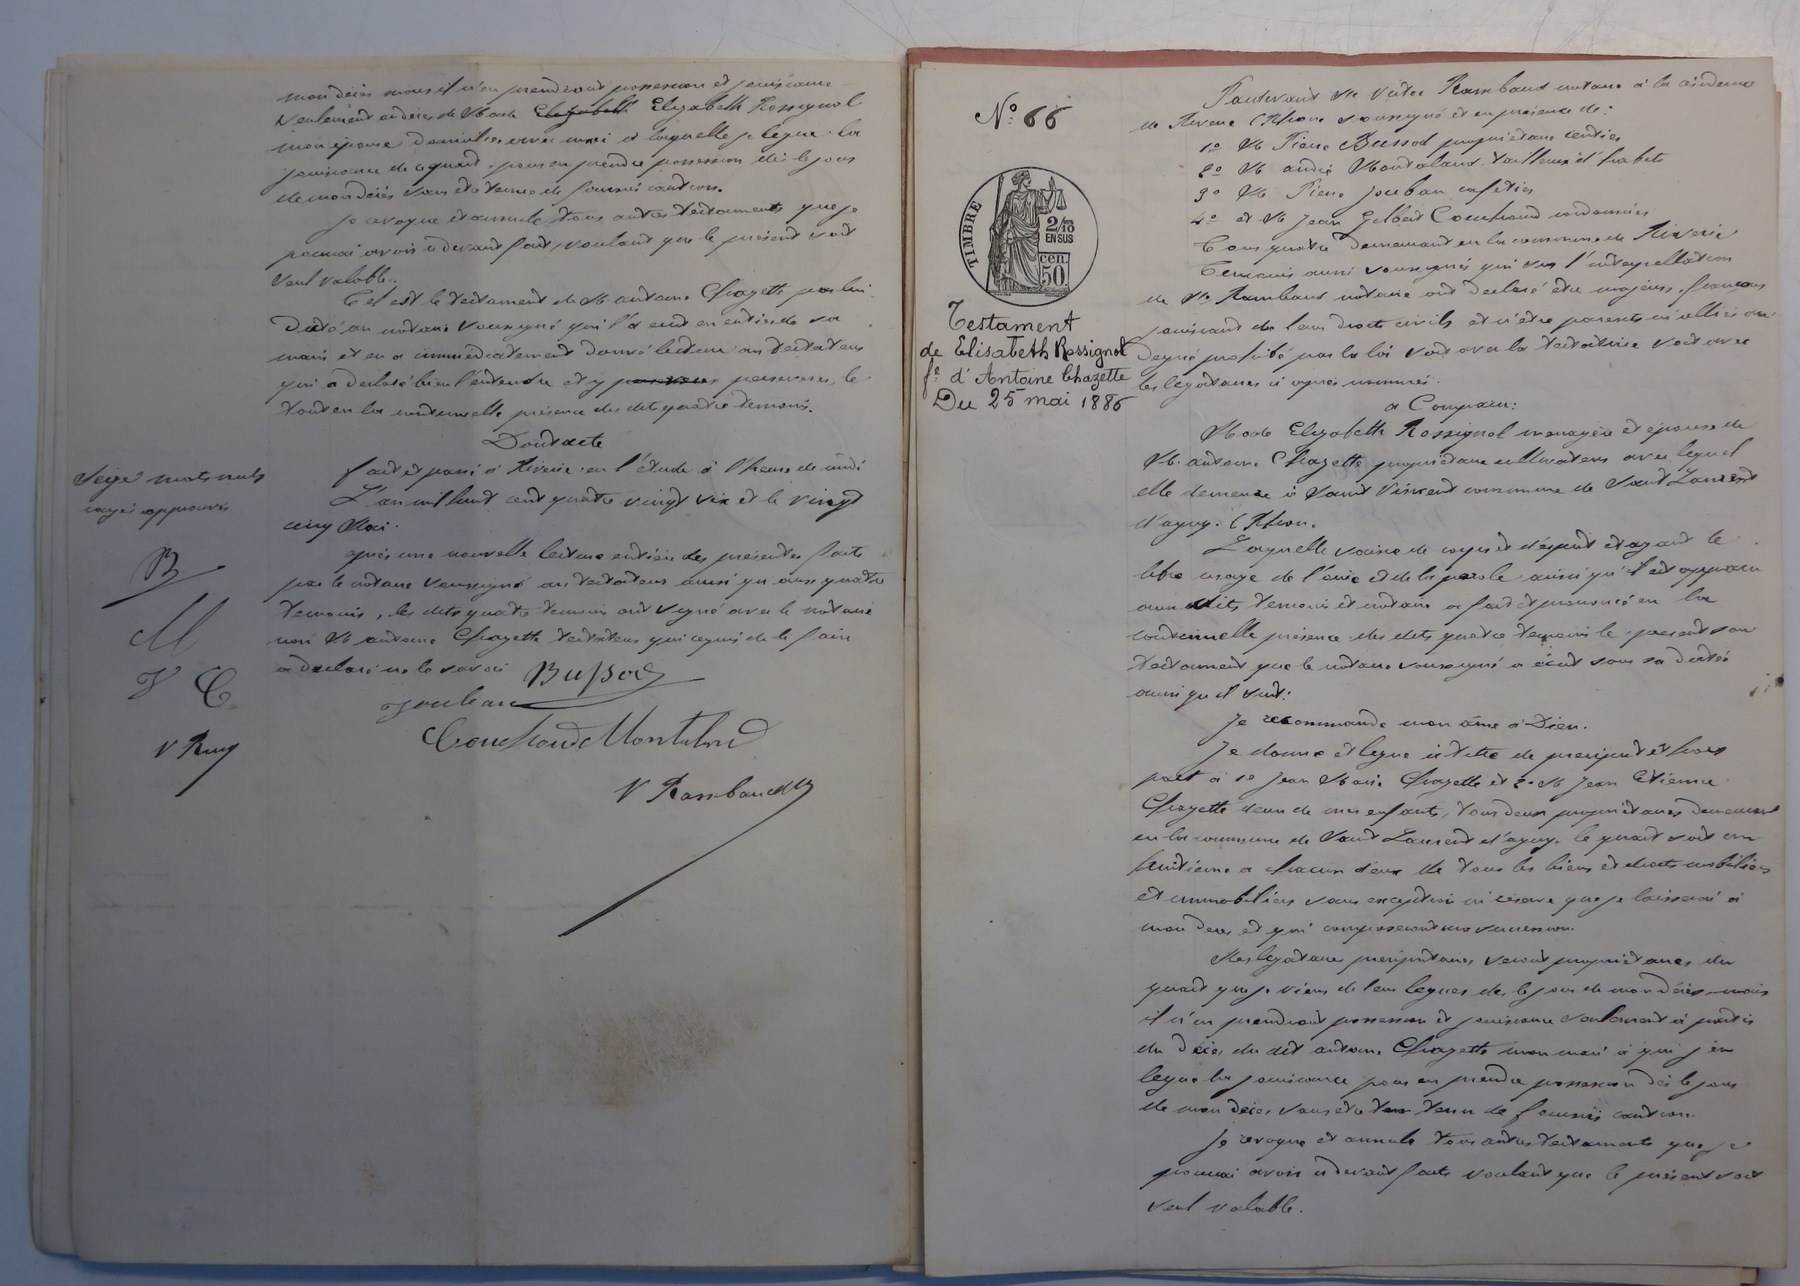 mon décès mais il n'en prendront possession et jouissance
seulement au décès de Made Elizabeth Elizabeth Rossignol
mon épouse domiciliée avec moi à laquelle je lègue la
jouissance de ce quart, pour en prendre possession dès le jour
de mon décès sans être tenue de fournir caution.
Je révoque et annule tous autres testaments que je
pourrai avoir ci devant fait, voulant que le présent soit
seul valable.
Tel est le testament de M. antoine Chazette par lui
dicté au notaire soussigné qui l'a écrit en entier de sa
main et en a immédiatement donné lecture au testateur
qui a déclaré bien l'entendre et y persévérer, le
tout en la continuelle présence des dits quatre témoins.
Dont acte
fait et passé à Riverie en l'étude à l'heure de midi
L'an mil huit cent quatre vingt six et le vingt
cinq Mai.
après une nouvelle lecture entière des présentes faite
par le notaire soussigné au testateur ainsi qu'aux quatre
témoins, les dits quatre témoins ont signé avec le notaire
non M. antoine Chazette testateur qui requis de le faire
a déclaré ne le savoir
Bussod
Joubau
Couchoud Montaland
V Rambaud
Seize mots nuls
rayés approuvés
B
M
J C
V Ramb
No 66
TIMBRE
2/10
EN SUS
50 cen.
Testament
de Elisabeth Rossignol
fe d'Antoine Chazette
Du 25 mai 1886
Pardevant Me Victor Rambaud notaire à la résidence
de Riverie (Rhône) soussigné et en présence de:
1o M Pierre Bussod propriétaire rentier
2o M andré Montaland, tailleur d'habits
3o M Pierre Joubau cafetier
4o et M Jean Gilbert Couchoud cordonnier
Tous quatre demeurant en la commune de Riverie
témoins aussi soussignés qui sur l'interpellation
de Me Rambaud notaire ont déclaré être majeurs français
jouissant de leurs droits civils et n'être parents ni alliés au
degré prohibé par la loi soit avec la testatrice soit avec
les légataires ci après nommés.
a Comparu:
Made Elizabeth Rossignol ménagère et épouse de
M. antoine Chazette propriétaire cultivateur avec lequel
elle demeure à Saint Vincent commune de Saint Laurent
d'agny. (Rhône.
Laquelle saine de corps et d'esprit et ayant le
libre usage de l'ouïe et de la parole ainsi qu'il est apparu
aux dits témoins et notaire a fait et prononcé en la
continuelle présence des dits quatre témoins le présent son
testament que le notaire soussigné a écrit sous sa dictée
ainsi qu'il suit:
Je recommande mon âme à Dieu.
Je donne et lègue à titre de préciput et hors
part à 1o Jean Marie Chazette et 2o M Jean Etienne
Chazette deux de mes enfants, tous deux propriétaires demeurant
en la commune de Saint Laurent d'agny, le quart soit un
huitième a chacun d'eux de tous les biens et droits mobiliers
et immobiliers sans exception ni réserve que je laisserai à
mon décès et qui composeront ma succession.
Mes légataires préciputaires seront propriétaires du
quart que je viens de leur léguer dès le jour de mon décès, mais
il n'en prendront possession et jouissance seulement à partir
du décès du dit antoine Chazette mon mari à qui j'en
lègue la jouissance pour en prendre possession dès le jour
de mon décès sans être tenu de fournir caution.
Je révoque et annule tous autres testaments que je
pourrai avoir ci devant faits voulant que le présent soit
seul valable.